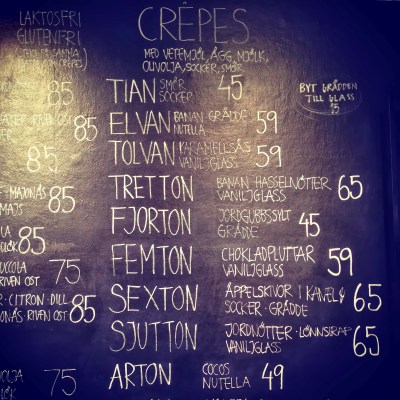 LAKTOSFRI
GLUTENFRI
85
85
85
MAJONÄS
MAJS 85
85
RIVEN OST 75
CITRON·DILL
RIVEN OST 85
75
CRÊPES
MED VETEMJÖL, ÄGG, MJÖLK,
OLIVOLJA, SOCKER, SMÖR
TIAN SMÖR
SOCKER 45
ELVAN BANAN GRÄDDE
NUTELLA 59
TOLVAN KARAMELLSÅS
VANILJGLASS 59
TRETTON BANAN HASSELNÖTTER
VANILJGLASS 65
FJORTON JORDGUBBSSYLT
GRÄDDE 45
FEMTON CHOKLADPLUTTAR
VANILJGLASS 59
SEXTON ÄPPELSKIVOR I KANEL &
SOCKER·GRÄDDE 65
SJUTTON JORDNÖTTER·LÖNNSIRAP
VANILJGLASS 65
ARTON COCOS
NUTELLA 49
BYT GRÄDDEN
TILL GLASS